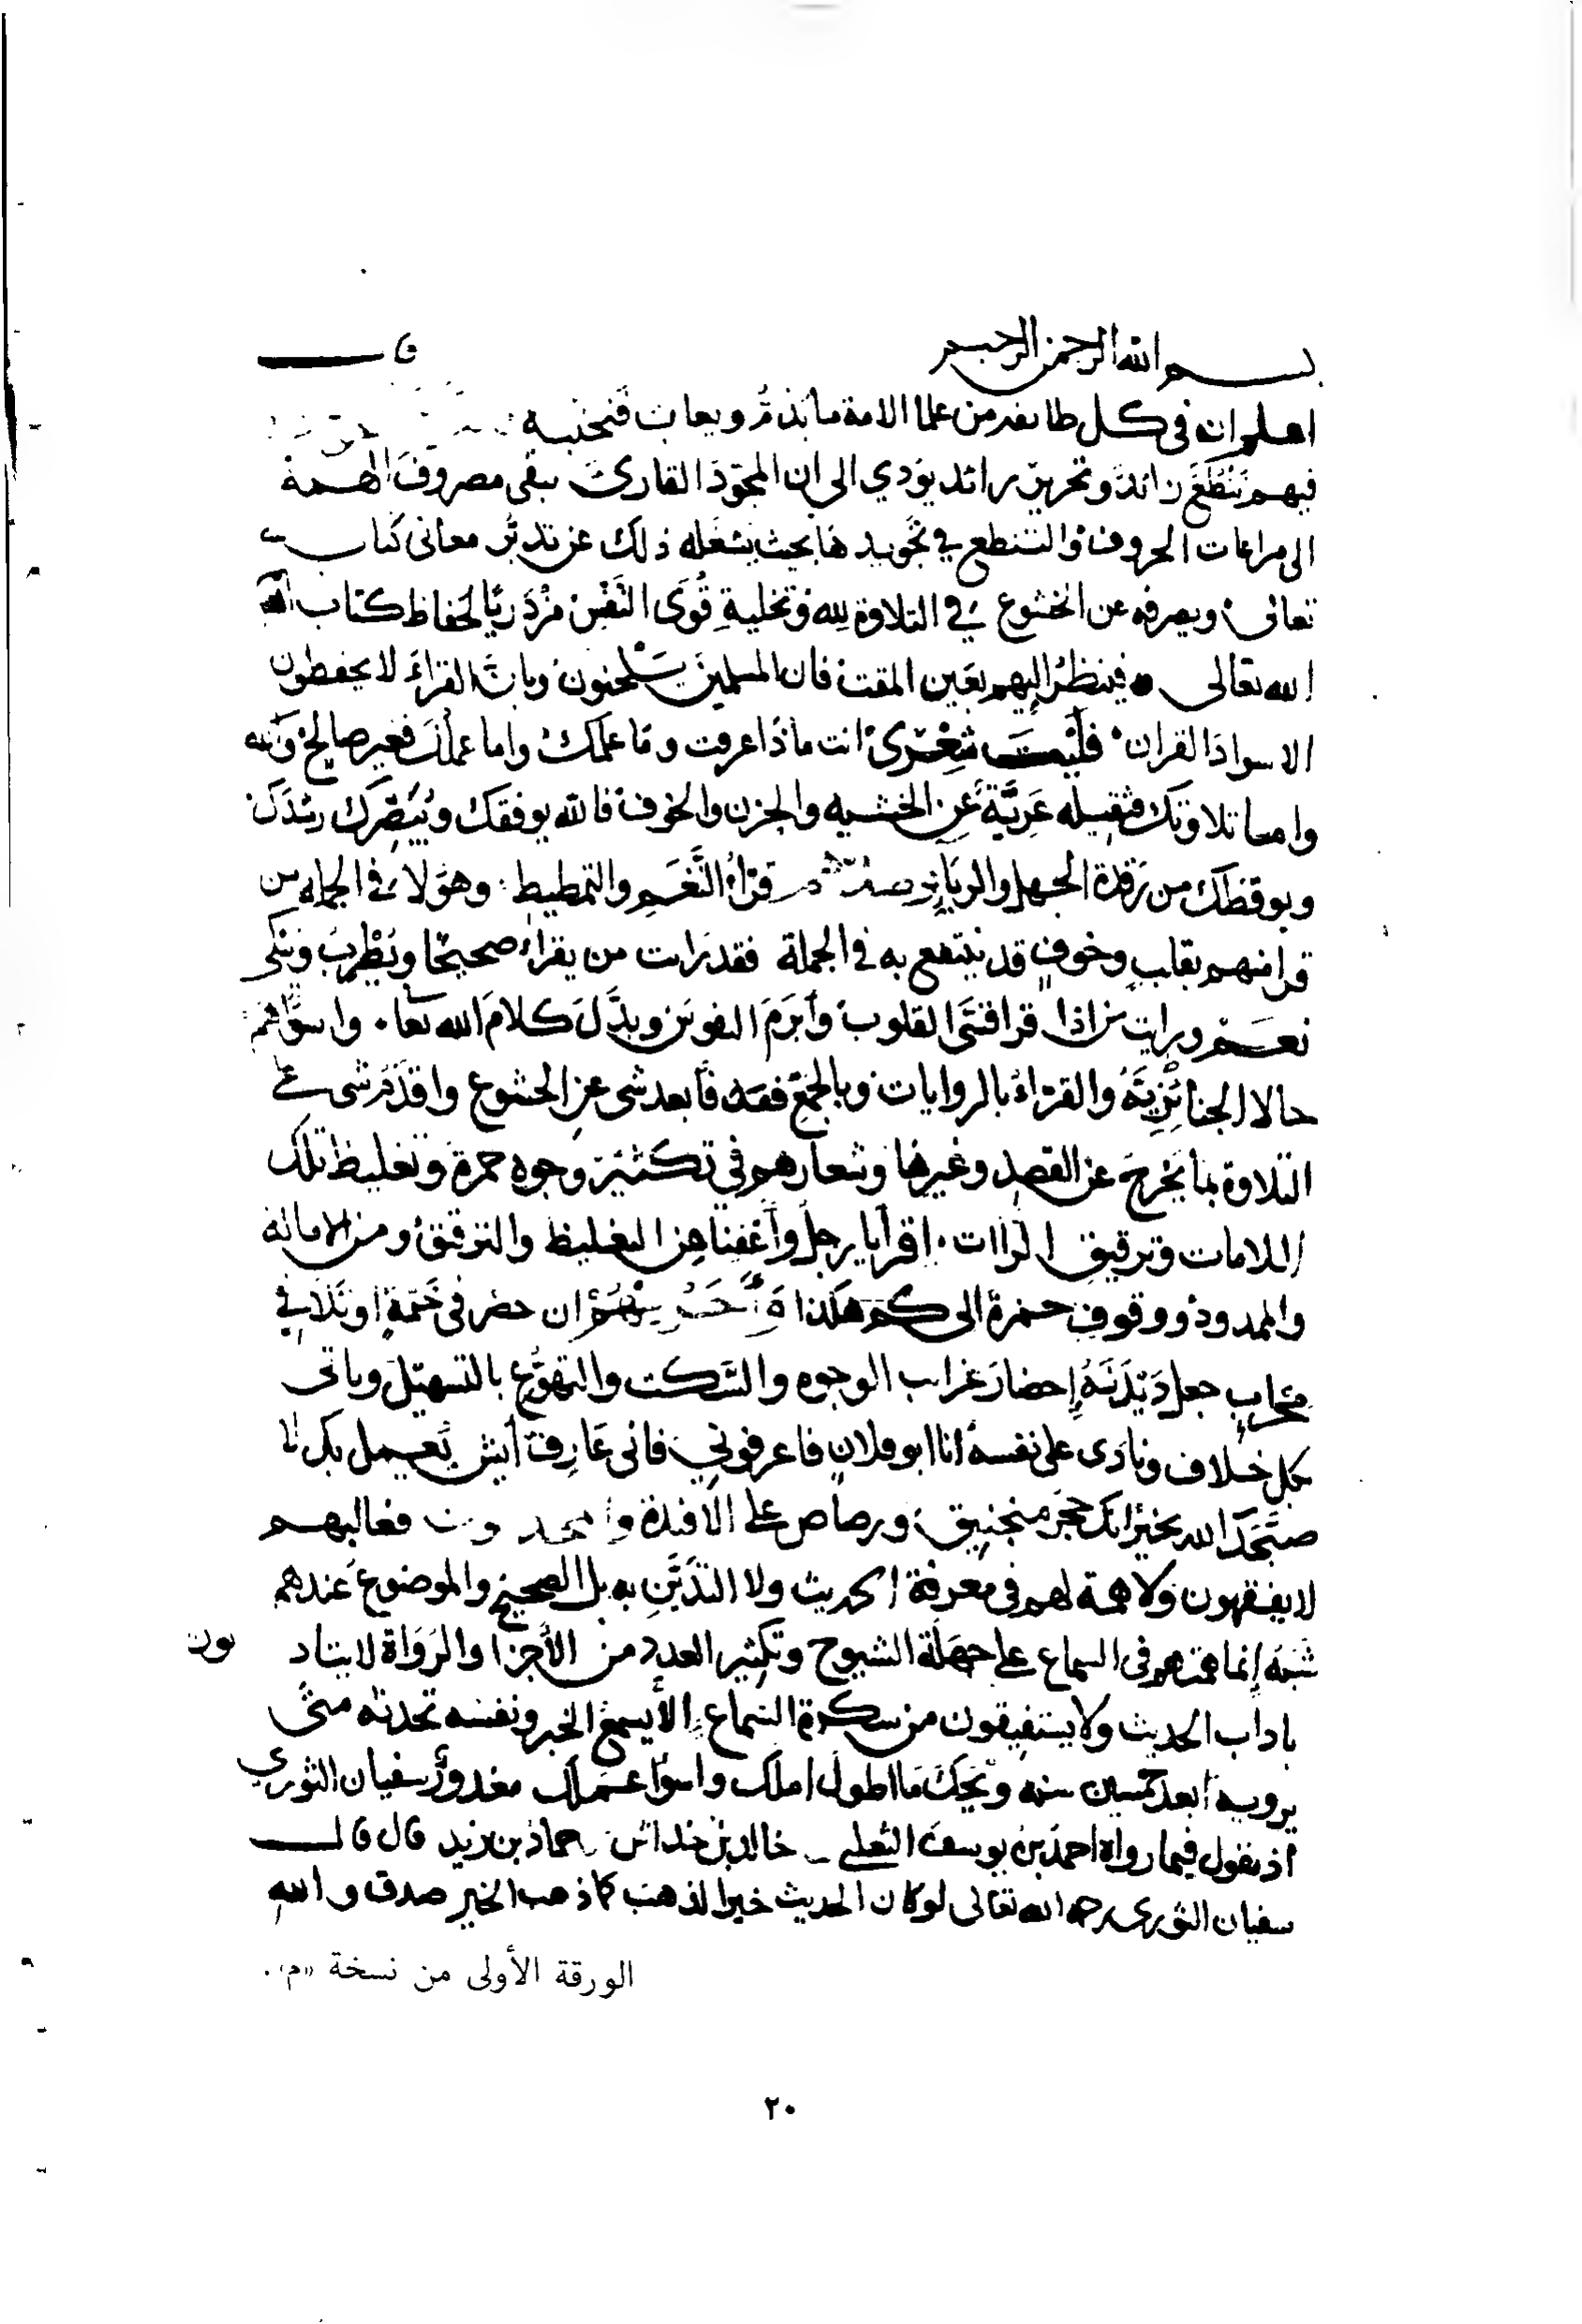 بسم الله الرحمن الرحيم قال
اعلم ان في كل طايفة من علما الامة ما يذم ويعاب فتجنبه
فيهم تنطع زائد وتحرير زائد يؤدي الى ان المجود القارئ يبقى مصروف الهمة
الى مراعات الحروف والتنطع في تجويدها بحيث يشغله ذلك عن تدبر معاني كتاب
تعالى ويصرفه عن الخشوع في التلاوة لله وتخلية قوى النفس مزدريا لحفاظ كتاب الله
الله تعالى فينظر اليهم بعين المقت فان المسلمين يلحنون وبان القراء لا يحفظون
الا سواد القران فليت شعري انت ماذا عرفت وما علمك واما عملك فغير صالح
واما تلاوتك فثقيلة عرية عن الخشية والحزن والخوف فالله يوفقك ويبصرك رشدك
ويوقظك من رقدة الجهل والرياء قراء النغم والتمطيط وهؤلاء في الجملة من
قرا منهم بقلب وخوف قد ينتفع به في الجملة فقد رات من يقرأ صحيحا ويطرب ويبكي
نعم ورايت من اذا قرا قسى القلوب وابرم النفوس وبدل كلام الله تعا واسواهم
حالا الجنائزية والقراء بالروايات وبالجمع فابعد شى عن الخشوع واقدم شى على
التلاوة بما يخرج عن القصد وغيرها وشعارهم في تكثير وجوه حمزة وتغليظ تلك
اللامات وترقيق الراات اقرا يا رجل واعفنا من التغليظ والترقيق ومن الامالة
والمدود ووقوف حمزة الى كم هذا منهم ان حضر في ختمة او تلا في
محراب جعل ديدنه إحضار غراب الوجوه والسكت والتهوع بالتسهيل وياتى
بكل خلاف ونادى على نفسه انا ابو فلان فاعرفوني فانى عارف أيش يعمل بك لا
صبحك الله بخير انك حجر منجنيق ورصاص على الافئدة فغالبهم
لا يفقهون ولا همة لهم في معرفة الحديث ولا التدين به بل الصحيح والموضوع عندهم
شبه إنما همتهم في السماع على جهلة الشيوخ وتكثير العدد من الأجزا والرواة لا يتادبون
باداب الحديث ولا يستفيقون من سكرة السماع الأن يسمع الخبر ونفسه تحدثه متى
يرويه أبعد خمسين سنه ويحك ما اطول املك واسوا عملك معذور سفيان الثوري
اذ يقول فيما رواه احمد بن يوسف التغلبي خالد بن خداش حماد بن زيد قال قال
سفيان الثوري رحمه الله تعالى لو كان الحديث خيرا لذهب كما ذهب الخير صدق والله
الورقة الأولى من نسخة «م».
٢٠